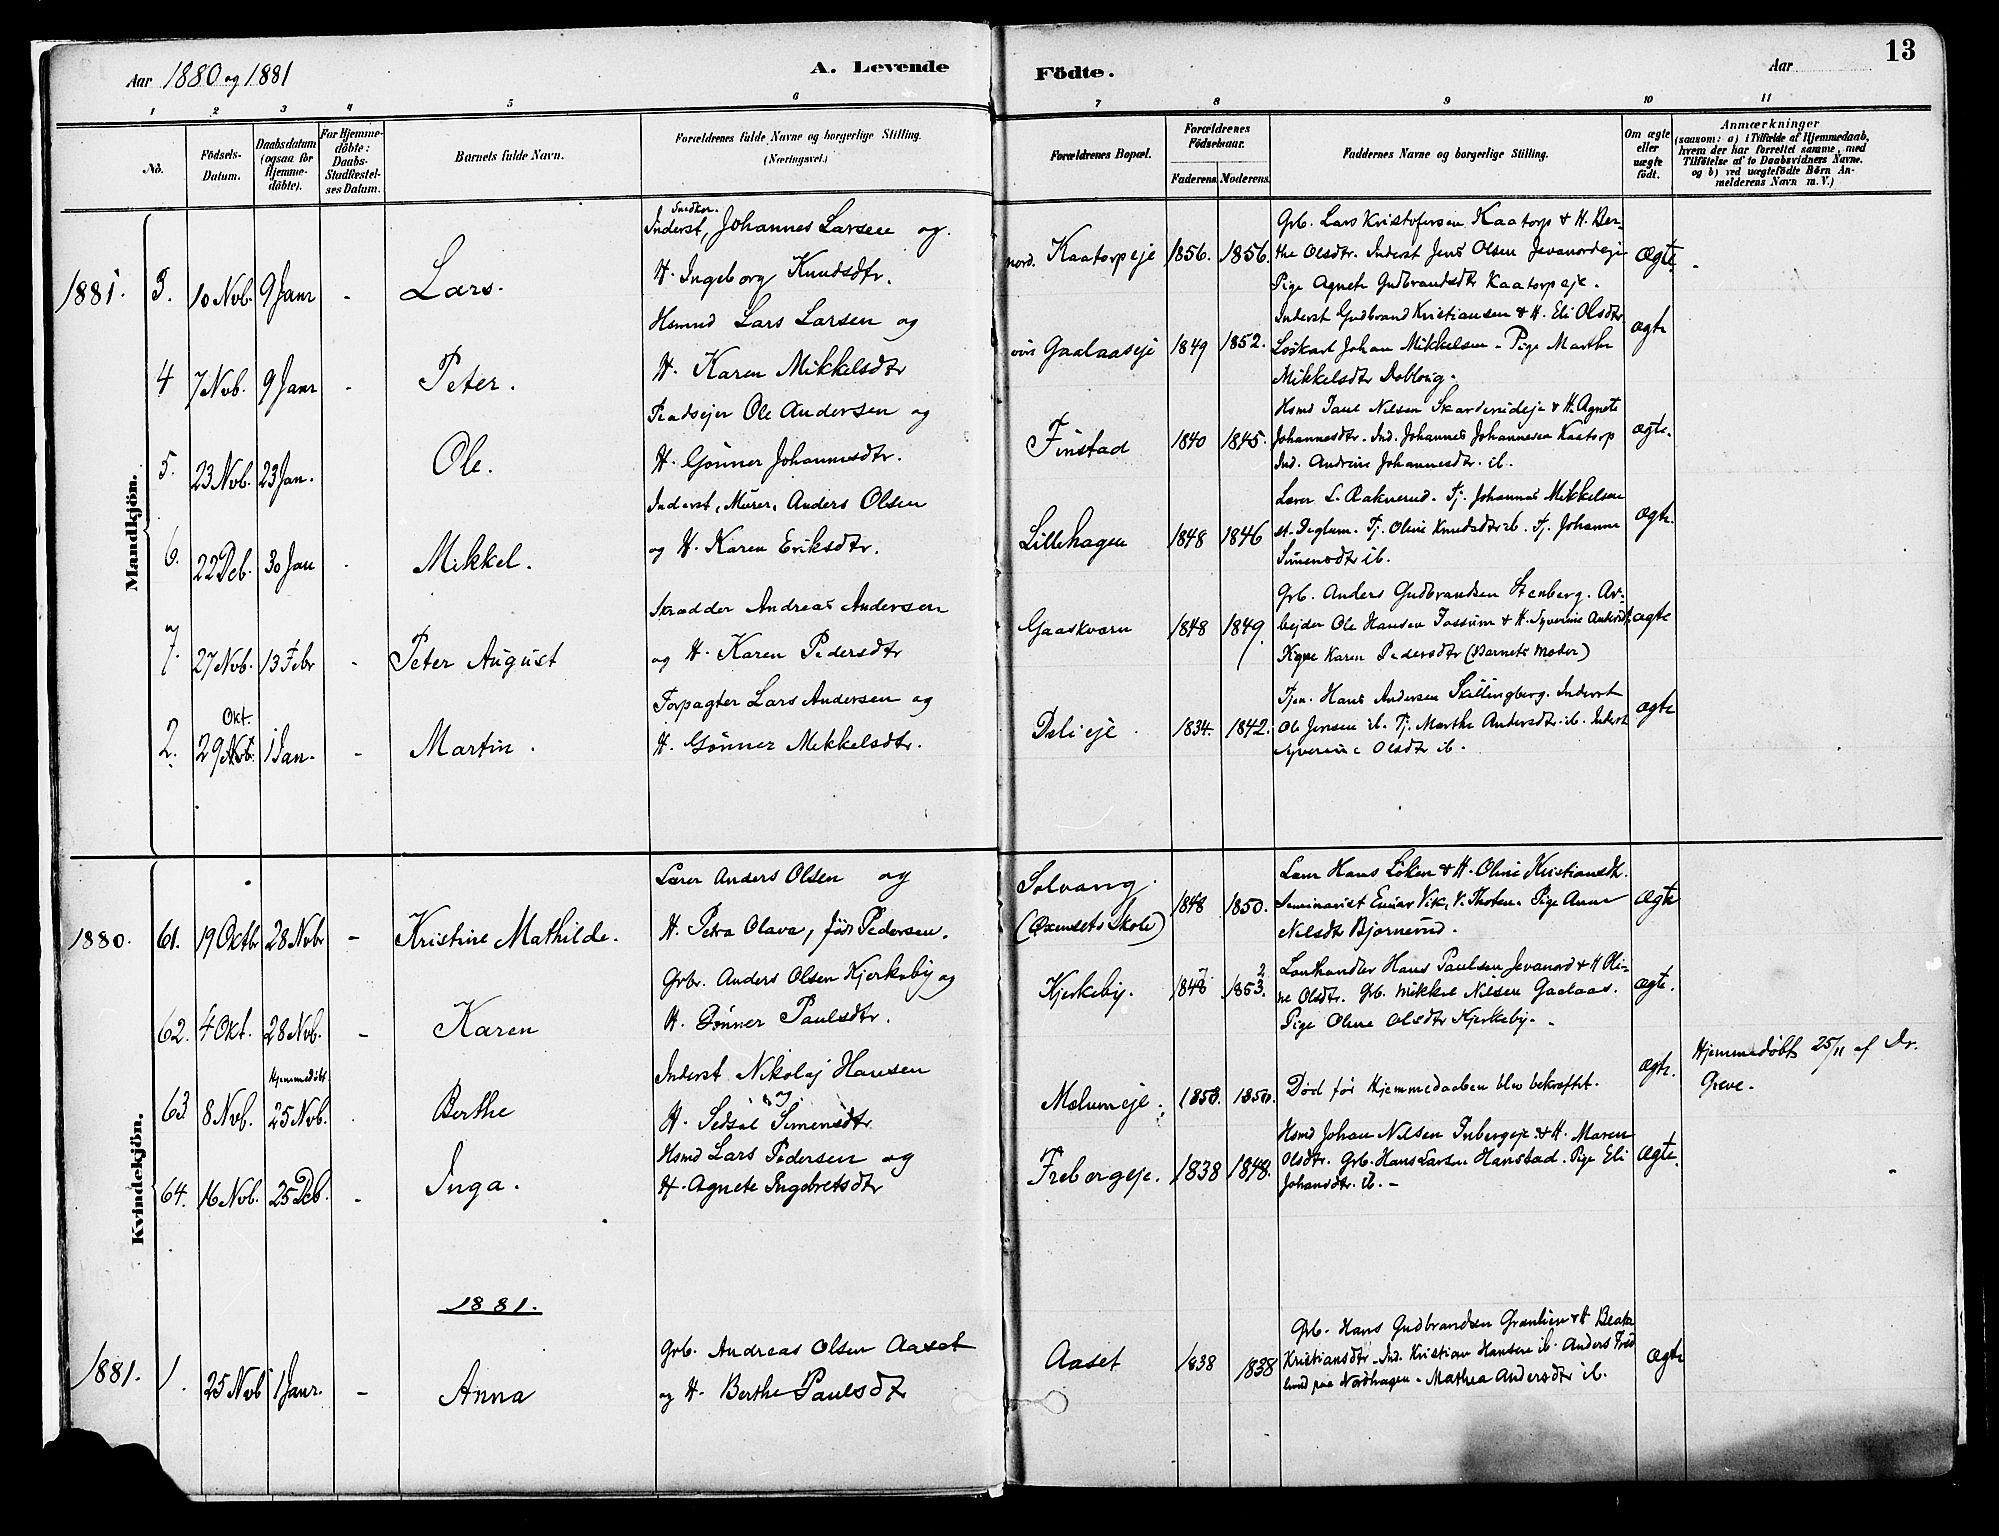 Aar 1880 og 1881
A. Levende
Födte.
Aar
13
1 2 3 4 5 6 7 8 9 10 11
No.
Födsels-
Datum.
Daabsdatum
(ogsaa for
Hjemme-
döbte).
For Hjemme-
döbte:
Daabs-
Stadfæstel-
ses Datum.
Barnets fulde Navn.
Forældrenes fulde Navne og borgerlige Stilling.
(Næringsvei.)
Forældrenes Bopæl.
Forældrenes
Födselsaar.
Faderens. Moderens.
Faddernes Navne og borgerlige Stilling.
Om ægte
eller
uægte
födt.
Anmærkninger
(saasom: a) i Tilfælde af Hjemmedaab,
hvem der har forrettet samme, med
Tilföielse af to Daabsvidners Navne.
og b) ved uægtefödte Börn An-
melderens Navn m. V.)
Mandkjön.
1881. 3. 10 Nvb. 9 Janr - Lars.
Snedker.
Inderst, Johannes Larsen og
H. Ingeborg Knudsdtr.
nord. Kaatorpeje 1856. 1856.
Grb. Lars Kristofersen Kaatorp & H. Ber-
the Olsdtr. Inderst Jens Olsen Jevanordeje
Pige Agnete Gudbrandsdtr Kaatorpeje.
ægte.
4 7 Nvb. 9 Janr - Peter.
Hsmnd Lars Larsen og
H. Karen Mikkelsdtr
Gaalaaseje 1849 1852.
Inderst Gudbrand Kristiansen & H. Eli Olsdtr
Löskarl Johan Mikkelsen - Pige Marthe
Mikkelsdtr Dobloug.
ægte
5. 23 Nvb. 23 Jan. Ole.
Pladsejer Ole Andersen og
H. Gönner Johannesdtr.
Finstad 1840 1845.
Hsmd Paul Nilsen Skarderudeje & H. Agnete
Johannesdtr. Ind. Johannes Johannesen Kaatorp
Ind. Andrine Johannesdtr. ib.
ægte.
6. 22 Deb. 30 Jan Mikkel.
Inderst, Murer, Anders Olsen
og H. Karen Eriksdtr.
Lillehagen 1848 1846
Lærer L. Raknerud. Tj. Johannes Mikkelsen
st. Deglum. Tj. Oline Knudsdtr ib. Tj. Johanne
Simensdtr ib.
ægte.
7. 27 Nvb. 13 Febr - Peter August
Skrædder Andreas Andersen
og H. Karen Pedersdtr
Gaaskværn 1848 1849.
Grb. Anders Gudbrandsen Stenberg. Ar-
bejder Ole Hansen Fossum & H. Syverine Andersdtr.
Karen Pedersdtr (Barnets Moder)
ægte
2. Okt.
29 Nvb. 1 Jan - - Martin.
Forpagter Lars Andersen og
H. Gönner Mikkelsdtr.
Delieje. 1834. 1842.
Tjen. Hans Andersen Skillingberg. Inderst
Ole Jensen ib. Tj. Marthe Andersdtr. ib. Inderst
Syverine Olsdtr ib.
ægte
Kvindekjön.
1880. 61. 19 Oktb 28 Nvbr - Kristine Mathilde.
Lærer Anders Olsen og
H. Petra Olava, födt Pedersen.
Solvang.
(Öxensets Skole) 1848 1850.
Lærer Hans Löken & H. Oline Kristiansdtr.
Seminarist Einar Vik, V. Thoten. Pige Anne
Nilsdtr Björnerud.
ægte
62. 4 Okt. 28 Nvb. - Karen
Grbr. Anders Olsen Kjerkeby og
H. Gönner Paulsdtr.
Kjerkeby. 1848 1853.
Landhandler Hans Paulsen Jevanord & H. Oli-
ne Olsdtr. Grb. Mikkel Nilsen Gaalaas.
Pige Oline Olsdtr Kjerkeby. -
ægte.
63 8 Nvb. Hjemmedöbt
25 Nvb. Berthe
Inderst Nikolaj Hansen
og
H. Sedsel Simensdtr
Melumeje. 1853. 1850.
Död för Hjemmedaaben blev bekræftet.
ægte.
Hjemmedöbt 25/11 af Dr.
Greve.
64. 16 Nvb. 25 Deb. - Inga.
Hsmd Lars Pedersen og
H. Agnete Ingebretsdtr
Frebergeje. 1838 1848.
Hsmd Johan Nilsen Inbergeje. & H. Maren
Olsdtr. Grb. Hans Larsen Hanstad. Pige Eli
Johansdtr. ib. -
ægte.
1881.
1881. 1. 25 Nvb 1 Janr. - Anna
Grb. Andreas Olsen Aaset
og H. Berthe Paulsdtr
Aaset 1838 1838
Grb. Hans Gudbrandsen Grönlien & H Beate
Kristiansdtr. Ind. Kristian Hansen ib. Anders
paa Nordhagen. Mathea Andersdtr ib.
ægte